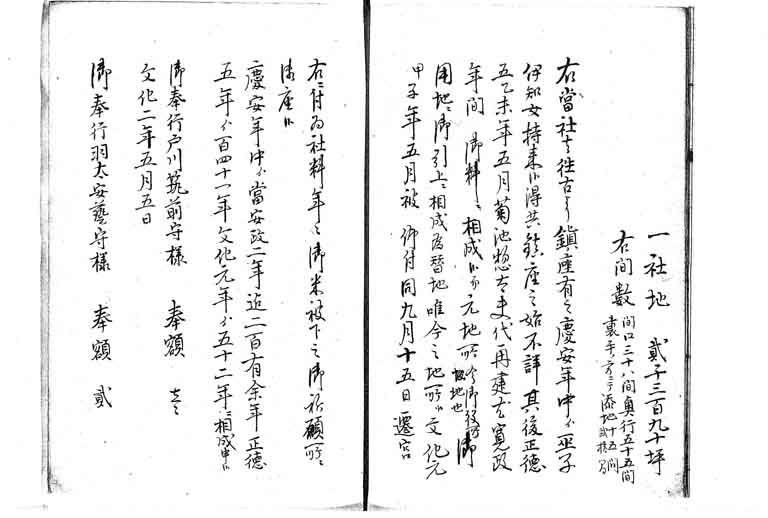 一社地 貳千三百九十坪
右間数 間口三十八間奥行五十五間
裏手ノ方ニ而添地十五間
右當社之往古ゟ鎮座有之慶安年中ゟ巫子
伊知女持来候得共鎮座之始不詳其後正徳
五乙未年五月菊池惣太夫代再建尤寛政
年間 御料ニ相成候ニ付元地所今御役所
御
用地ニ御引上ニ相成為替地唯今之地所ニ文化元
甲子年五月被 仰付同九月十五日遷宮
右ニ付為社料年々御米被下之御祈願所ニ
御座候
慶安年中ゟ當安政二年迄二百有余年正徳
五年ゟ百四十一年文化元年ゟ五十二年ニ相成申候
御奉行戸川筑前守様 奉額
文化二年五月五日
御奉行羽太安藝守様 奉額 貳